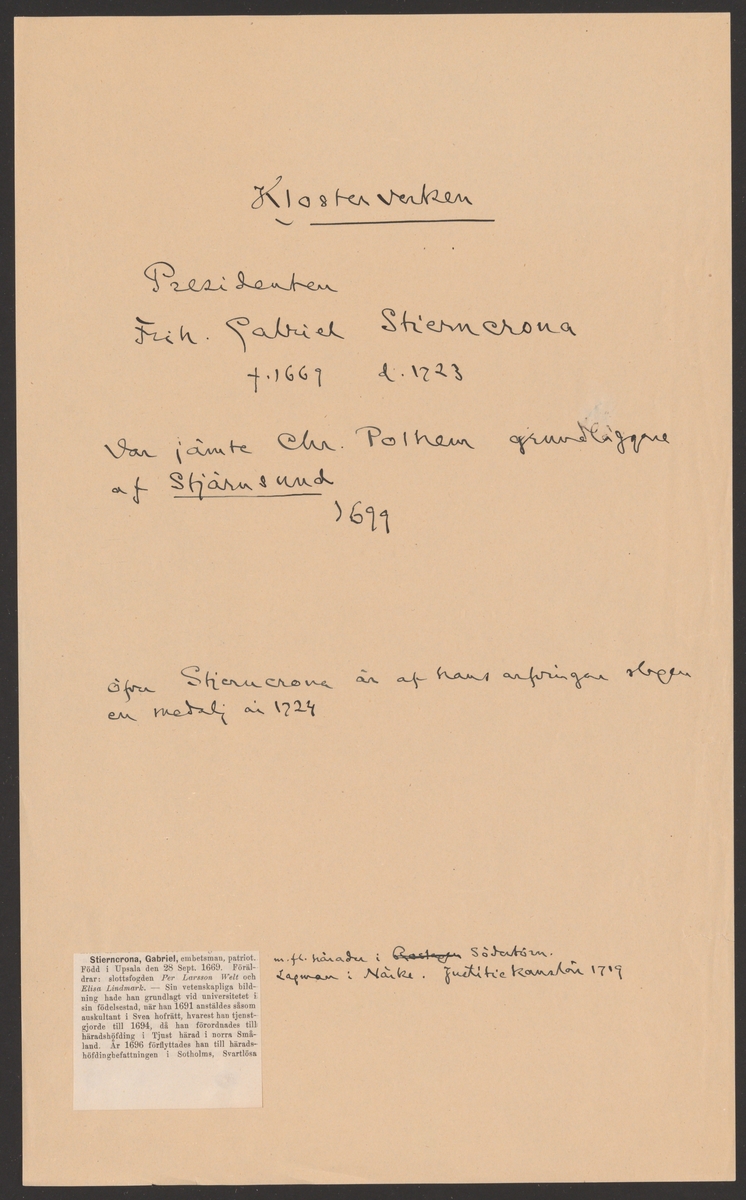 Klosterverken
Presidenten
Frih. Gabriel Stierncrona
f. 1669 d. 1723
Var jämte Chr. Polhem grundläggare
af Stjärnsund
1699
öfver Stjerncrona är af hans arfvingar slagen
en medalj år 1724
Stierncrona, Gabriel, embetsman, patriot.
Född i Upsala den 28 Sept. 1669. Föräl-
drar: slottsfogden Per Larsson Welt och
Elisa Lindmark. — Sin vetenskapliga bild-
ning hade han grundlagt vid universitetet i
sin födelsestad, när han 1691 anstäldes såsom
auskultant i Svea hofrätt, hvarest han tjenst-
gjorde till 1694, då han förordnades till
häradshöfding i Tjust härad i norra Små-
land. År 1696 förflyttades han till härads-
höfdingbefattningen i Sotholms, Svartlösa
m. fl. härader i Södertörn.
Lagman i Närke. Justitiekanslär 1719